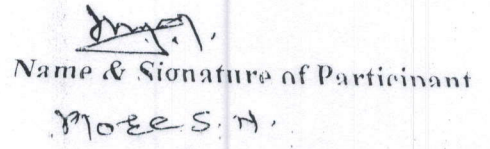 Name & Signature of Participant
More S. N.